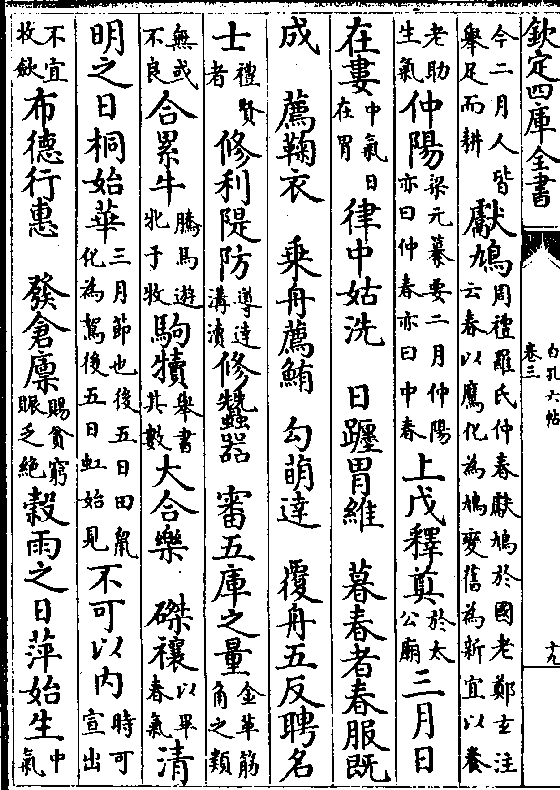 欽定四庫全書 白孔六帖 卷三 十九
今二月人皆舉足而耕 獻鳩 周禮羅氏仲春獻鳩於國老鄭玄注云春以鷹化為鳩變舊為新宜以養
老助生氣 仲陽 梁元纂要二月仲陽亦曰仲春亦曰中春 上戊釋奠 於太公廟 三月日
在婁 中氣日在胃 律中姑洗 日躔胃維 暮春者春服既
成 薦鞠衣 乗舟薦鮪 勾萌達 覆舟五反聘名
士 禮賢者 修利隄防 導達溝瀆 修蠶器 審五庫之量 金革筋角之類
無或不良 合累牛 騰馬遊牝于牧 駒犢 舉書其數 大合樂 磔禳 以畢春氣 清
明之日桐始華 三月節也後五日田鼠化為鴽後五日虹始見 不可以内 時可宣出
不宜收斂 布德行惠 發倉廩 賜貧窮賑乏絶 榖雨之日萍始生 中氣